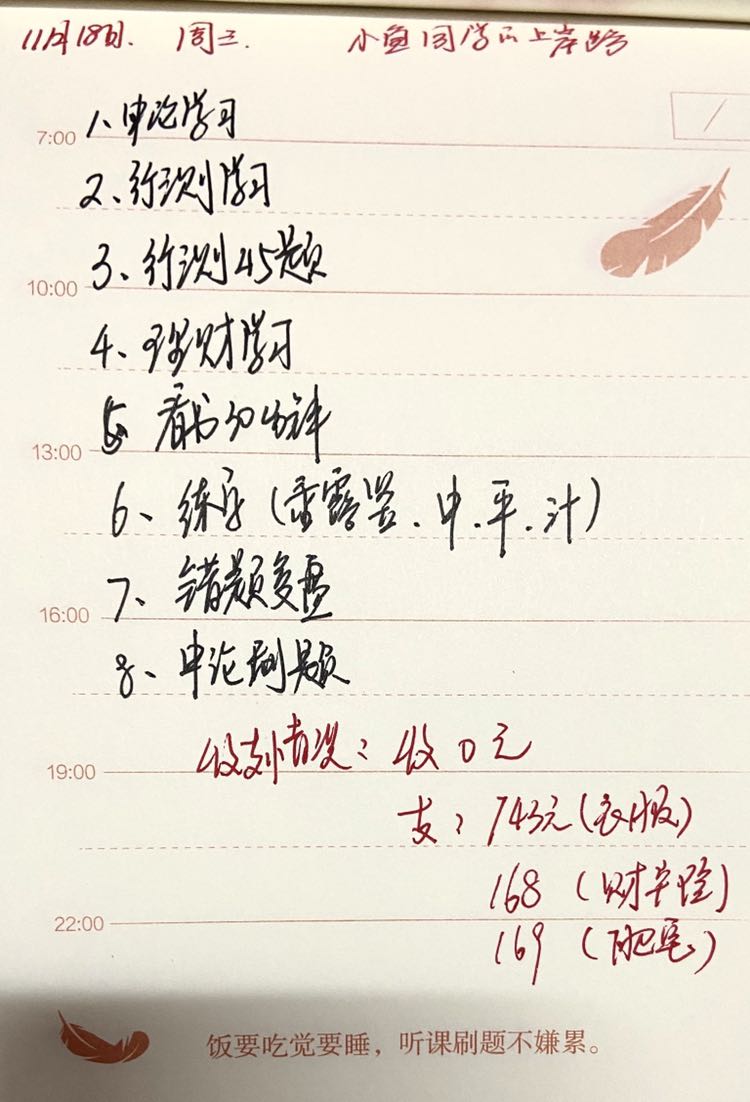 11月18日. 周三. 小鱼同学的上岸路
7:00 1、申论学习
2、行测学习
3、行测45题
10:00
4、理财学习
5 看书30分钟
13:00
6、练字(香露、申、平、汁)
7、错题复盘
16:00
8、申论刷题
收支情况: 收0元
19:00
支: 743元(衣服)
168 (财)
22:00
169 ()
饭要吃觉要睡，听课刷题不嫌累。